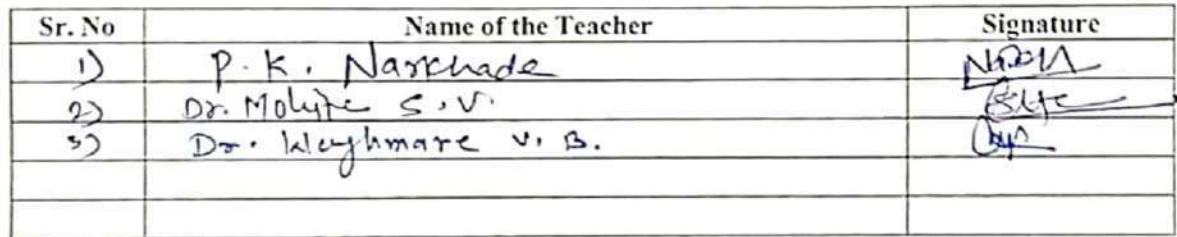 Sr. No Name of the Teacher Signature
1) P. K. Narkhade
2) Dr. Mohite S. V.
3) Dr. Waghmare V. B.